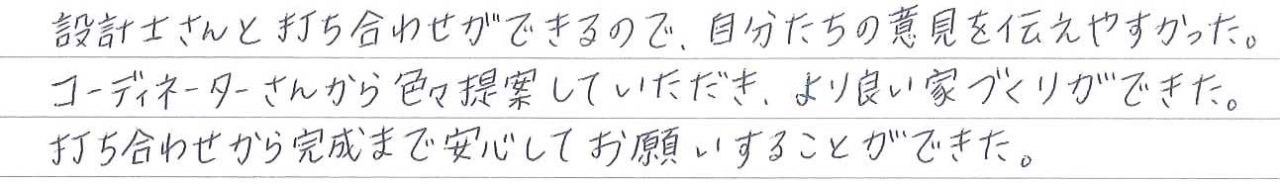 設計士さんと打ち合わせができるので、自分たちの意見を伝えやすかった。
コーディネーターさんから色々提案していただき、より良い家づくりができた。
打ち合わせから完成まで安心してお願いすることができた。